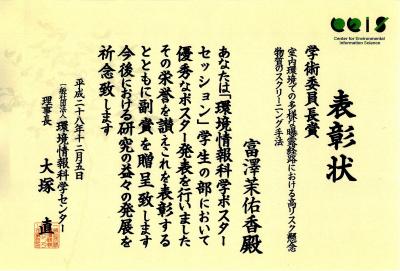 ceis
Center for Environmental
Information Science
表彰状
学術委員長賞
室内環境での多様な曝露経路における高リスク懸念
物質のスクリーニング手法
富澤茉佑香殿
あなたは「環境情報科学ポスター
セッション」学生の部において
優秀なポスター発表を行いました
その栄誉を讃えこれを表彰する
とともに副賞を贈呈致します
今後における研究の益々の発展を
祈念致します
平成二十八年十二月五日
一般社団法人 環境情報科学センター
理事長 大塚直